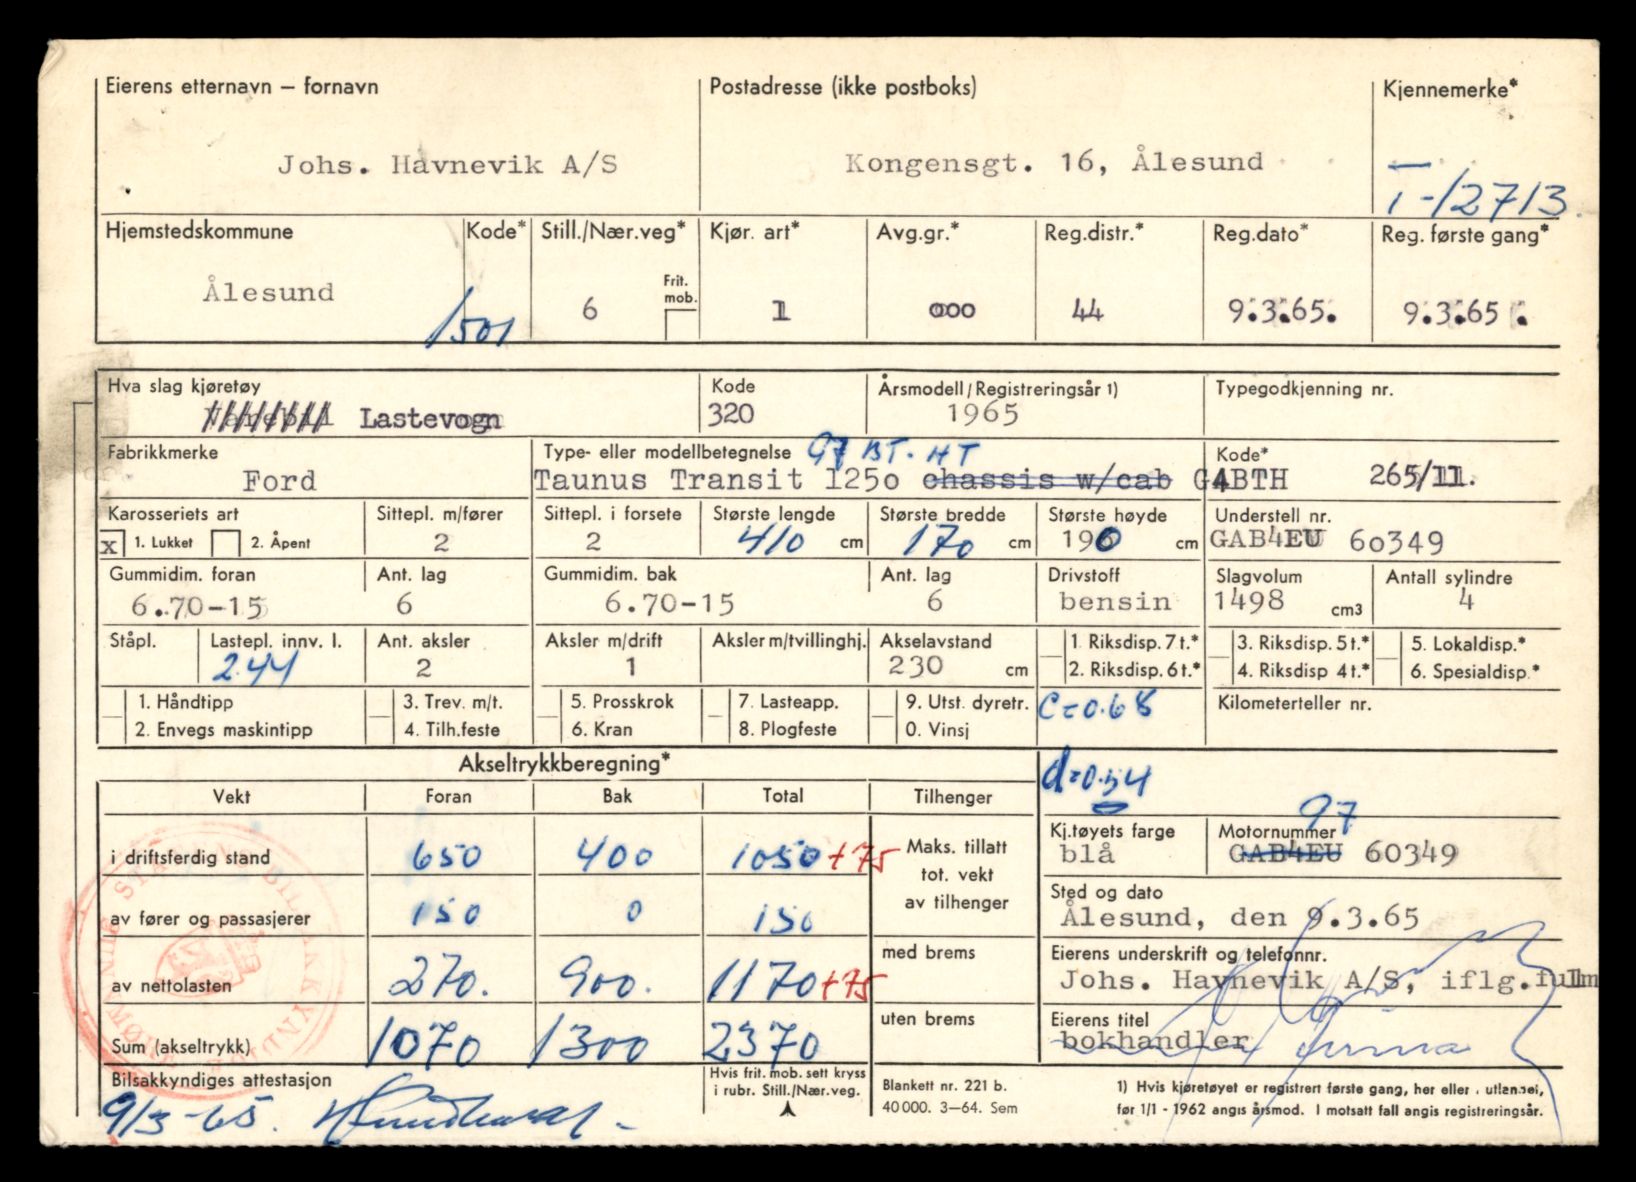 Eierens etternavn – fornavn Postadresse (ikke postboks) Kjennemerke*
Johs. Havnevik A/S Kongensgt. 16, Ålesund T-12713
Hjemstedskommune Kode* Still./Nær.veg* Kjør. art* Avg.gr.* Reg.distr.* Reg.dato* Reg. første gang*
Frit. mob.
Ålesund 1501 6 1 000 44 9.3.65. 9.3.65.
Hva slag kjøretøy Kode Årsmodell/Registreringsår 1) Typegodkjenning nr.
Varebil Lastevogn 320 1965
Fabrikkmerke Type- eller modellbetegnelse 97 BT. HT Kode*
Ford Taunus Transit 1250 chassis w/cab G4BTH 265/11.
Karosseriets art Sittepl. m/fører Sittepl. i forsete Største lengde Største bredde Største høyde Understell nr.
x 1. Lukket 2. Åpent 2 2 410 cm 170 cm 190 cm GAB4EU 60349
Gummidim. foran Ant. lag Gummidim. bak Ant. lag Drivstoff Slagvolum Antall sylindre
6.70-15 6 6.70-15 6 bensin 1498 cm3 4
Ståpl. Lastepl. innv. l. Ant. aksler Aksler m/drift Aksler m/tvillinghj. Akselavstand 1. Riksdisp. 7 t.* 3. Riksdisp. 5 t.* 5. Lokaldisp.*
244 2 1 230 cm 2. Riksdisp. 6 t.* 4. Riksdisp 4 t.* 6. Spesialdisp.*
1. Håndtipp 3. Trev. m/t. 5. Prosskrok 7. Lasteapp. 9. Utst. dyretr. C=0.68 Kilometerteller nr.
2. Envegs maskintipp 4. Tilh.feste 6. Kran 8. Plogfeste 0. Vinsj
Akseltrykkberegning* d=0.54
Vekt Foran Bak Total Tilhenger
97
Kj.tøyets farge Motornummer
i driftsferdig stand 650 400 1050+75 Maks. tillatt blå GAB4EU 60349
tot. vekt
Sted og dato
av fører og passasjerer 150 0 150 av tilhenger Ålesund, den 9.3.65
med brems Eierens underskrift og telefonnr.
av nettolasten 270. 900. 1170+75 Johs. Havnevik A/S, iflg.fullm
uten brems Eierens titel
Sum (akseltrykk) 1070 1300 2370 bokhandler firma
Bilsakkyndiges attestasjon Hvis frit. mob. sett kryss i rubr. Still./Nær.veg.
9/3-65.
Blankett nr. 221 b.
40 000. 3–64. Sem
1) Hvis kjøretøyet er registrert første gang, her eller i utlandet,
før 1/1 - 1962 angis årsmod. I motsatt fall angis registreringsår.